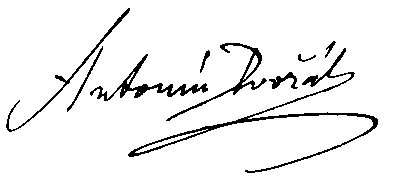 Antonín Dvořák